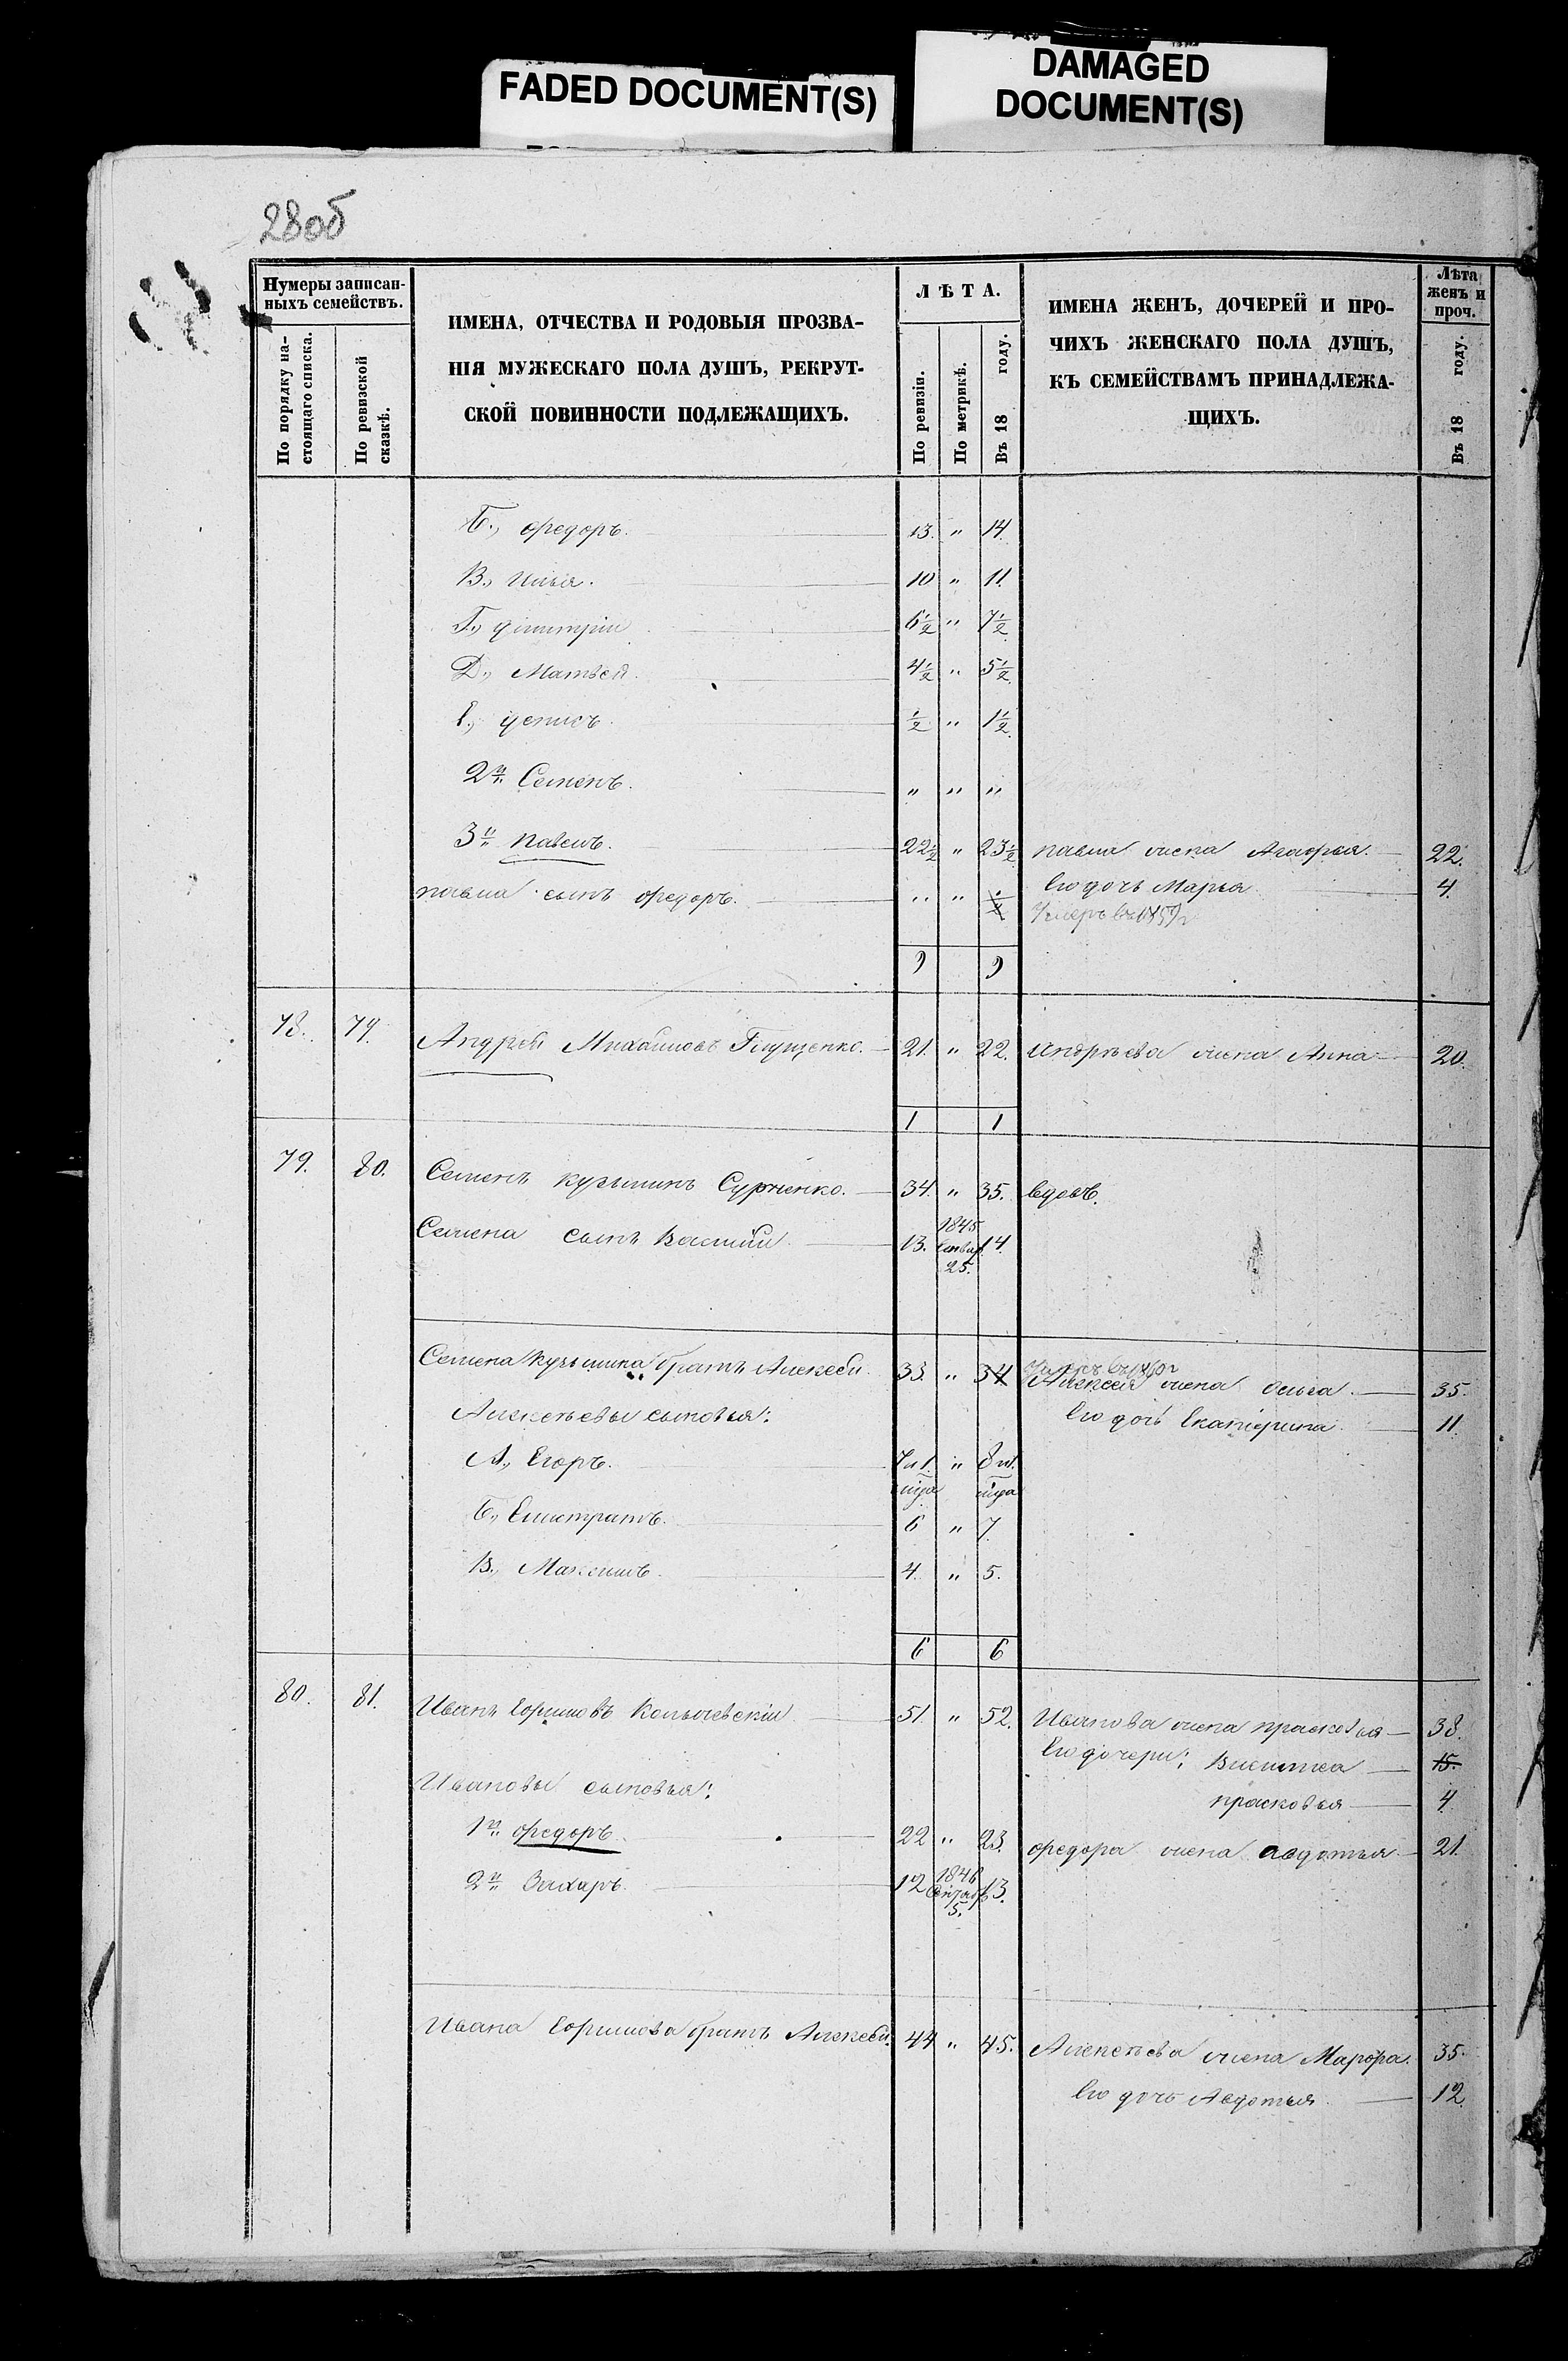 FADED DOCUMENT(S)
DAMAGED
DOCUMENT(S)
28об
Нумеры записан-
ныхъ семействъ.
По порядку на-
стоящаго списка.
По ревизской
сказкѣ.
ИМЕНА, ОТЧЕСТВА И РОДОВЫЯ ПРОЗВА-
НІЯ МУЖЕСКАГО ПОЛА ДУШЪ, РЕКРУТ-
СКОЙ ПОВИННОСТИ ПОДЛЕЖАЩИХЪ.
ЛѢТА.
По ревизіи.
По метрикѣ.
Въ 18 году.
ИМЕНА ЖЕНЪ, ДОЧЕРЕЙ И ПРО-
ЧИХЪ ЖЕНСКАГО ПОЛА ДУШЪ,
КЪ СЕМЕЙСТВАМЪ ПРИНАДЛЕЖА-
ЩИХЪ.
Лѣта
женъ и
проч.
Въ 18 году.
Б., Федоръ. 13. " 14.
В., Илья. 10 " 11.
Г., Димитрій 6 1/2 " 7 1/2
Д., Матвей. 4 1/2 " 5 1/2
Е., Денисъ. 1/2 " 1 1/2
2й Семенъ. " " "
3й Павелъ. 22 1/2 " 23 1/2 Павла жена Агафья. 22.
Его дочь Марья 4.
Павла сынъ Федоръ. " " 1/2 Умеръ въ 1859г
9 9
78. 79. Андрей Михайловъ Глущенко. 21. " 22. Андрѣева жена Анна 20.
1 1
79. 80. Семенъ Кузьминъ Сурненко. 34. " 35. вдовъ.
Семена сынъ Василій 13. 1845 Генвар. 25. 14.
Умеръ въ 1860г
Семена Кузьмина братъ Алексей 33. " 34 Алексея жена Ольга. 35.
Его дочь Екатерина. 11.
Алексѣевы сыновья:
А., Егоръ. 7 и 1. " 8 и 1.
Б., Елистратъ. 6 " 7.
В., Максимъ. 4. " 5.
6 6
80. 81. Иванъ Ефимовъ 51. " 52. Иванова жена Прасковья 38.
Его дочери: 15.
Прасковья 4.
Ивановы сыновья:
1й Федоръ. 22 " 23. Федора жена Авдотья 21.
2й Захаръ. 12 1846 Сентяб. 5. 13.
Ивана Ефимова братъ Алексей. 44 " 45. Алексѣева жена Марфа. 35.
Его дочь Авдотья 12.